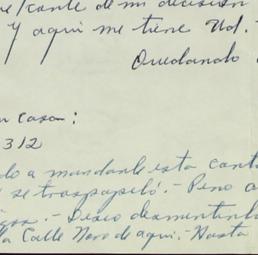 de mi decisión
Y aquí me tiene Ud.
Quedando
casa:
312
a mandarle esta carta
se traspapeló.- Pero a
.- Deseo desmentirle
a Calle Nord de aquí.- Hasta